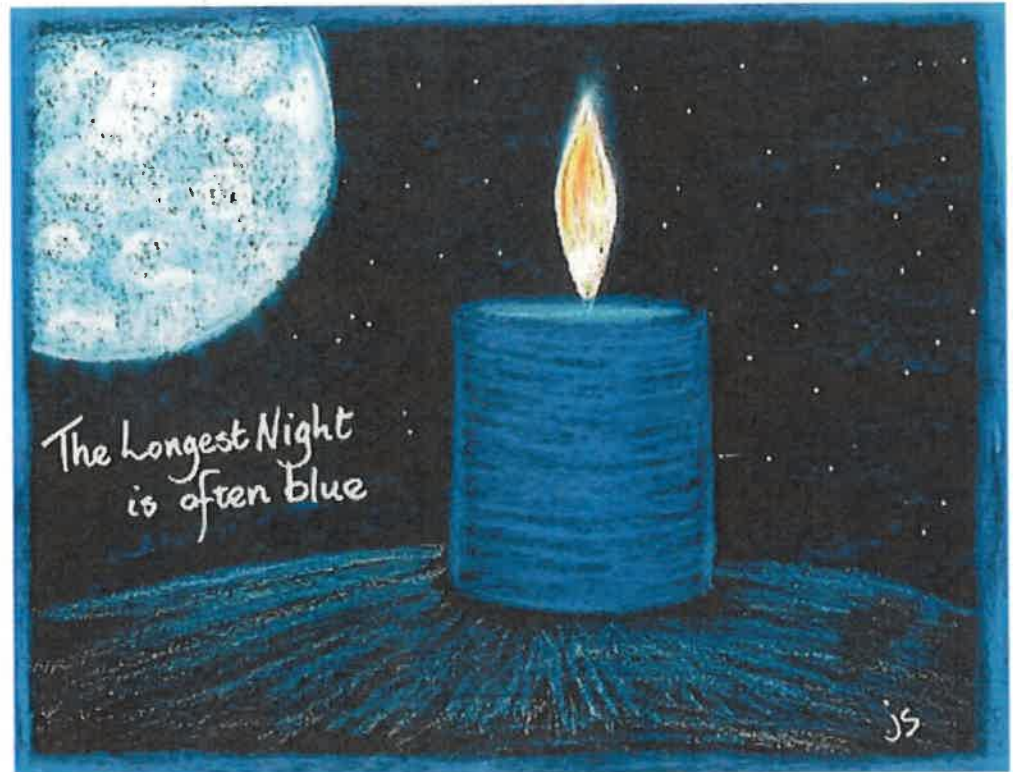 The Longest Night
is often blue
js